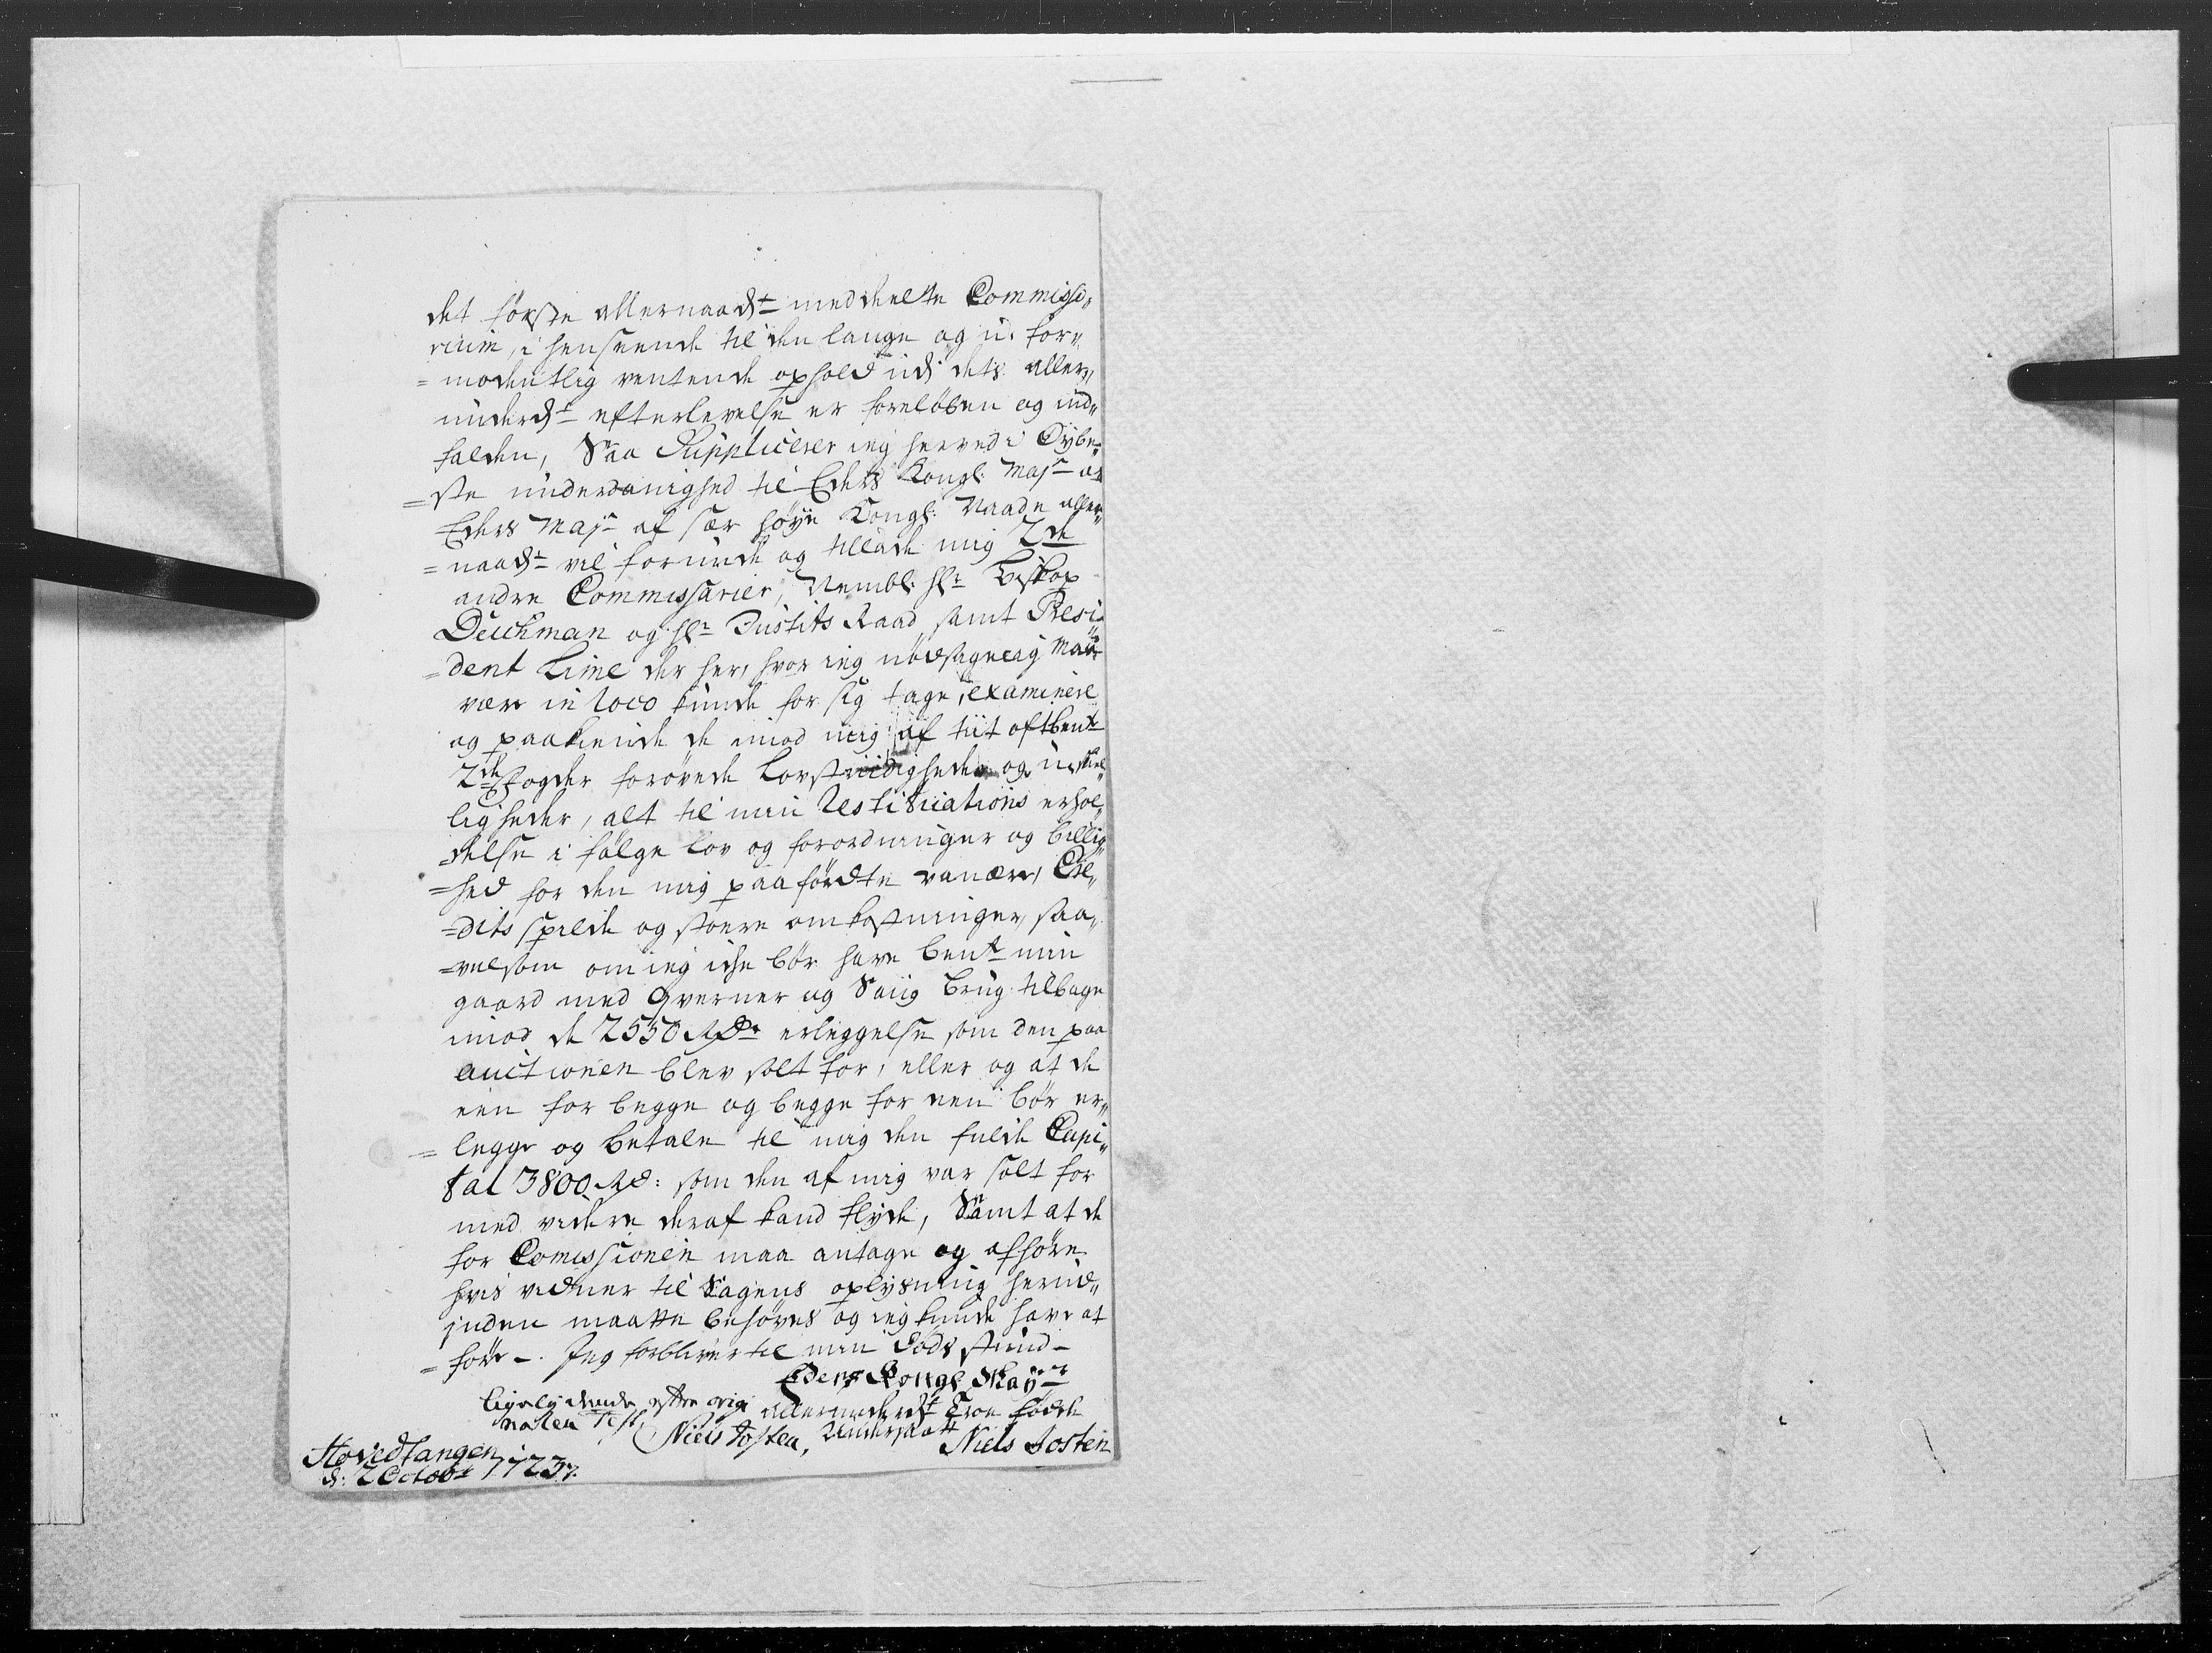 det første allernaadst meddeelte Commissa„
rium, i henseende til den lange og u-for„
= modentlig ventende ophold udj dets aller„
underdst efterlevelse er foreløben og ind„
falden, Saa Suppliceres ieg herved i Dybe„
= ste underdanighed til Eders Kongl: Majt at
Eders Majt af sær høye Kongl: Naade aller„
= naadst vil forunde og tillade mig 2de
andre Commissarier, Nembl: Hr Biskop
Deichman og Hr Justits Raad samt Presi„
= dent Lime der her, hvor ieg nødsagelig maa
være in loco kunde for sig tage, examinere
og paakiende de imod mig af tit oftbente
2de Fogder forøvede Lovstriidigheder og u-skiel„
ligheder, alt til min Restitutions erhol„
= delse i følge lov og forordninger og billig„
= hed for den mig paaførdte vanære, Cre„
= dits spilde og store omkostninger, saa„
= velsom om ieg iche bør have bente min
gaard med Qverner og Saug brug tilbage
imod de 2550 Rdr erleggelse som den paa
auctionen blev solt for, eller og at de
een for begge og begge for een bør er„
= legge og betale til mig den fulde Capi„
tal 3800 Rd: som den af mig var solt for
med videre deraf kand flyde, Samt at de
for Comissionen maa antage og afhøre
hvis vidner til Sagens oplysning herud„
inden maatte behøves og ieg kunde have at
= føre -. Jeg forbliver til min Døds stund -
Eders Kongl Mayts
ligelydende efter origi
nalen Test,
Niels Tosten,
allerunderdst Troe fødde
Undersaatt
Niels Tosten
Hovedtangen
d: 2 Octobr 1723.